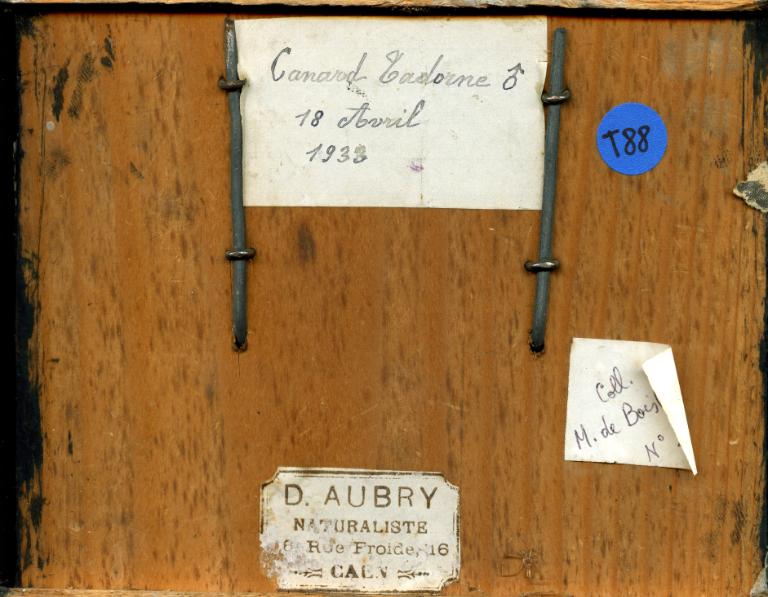 Canard Tadorne ♂
18 Avril
1933
T88
Coll.
M. de Bois
N°
D. AUBRY
NATURALISTE
16 Rue Froide, 16
CAEN